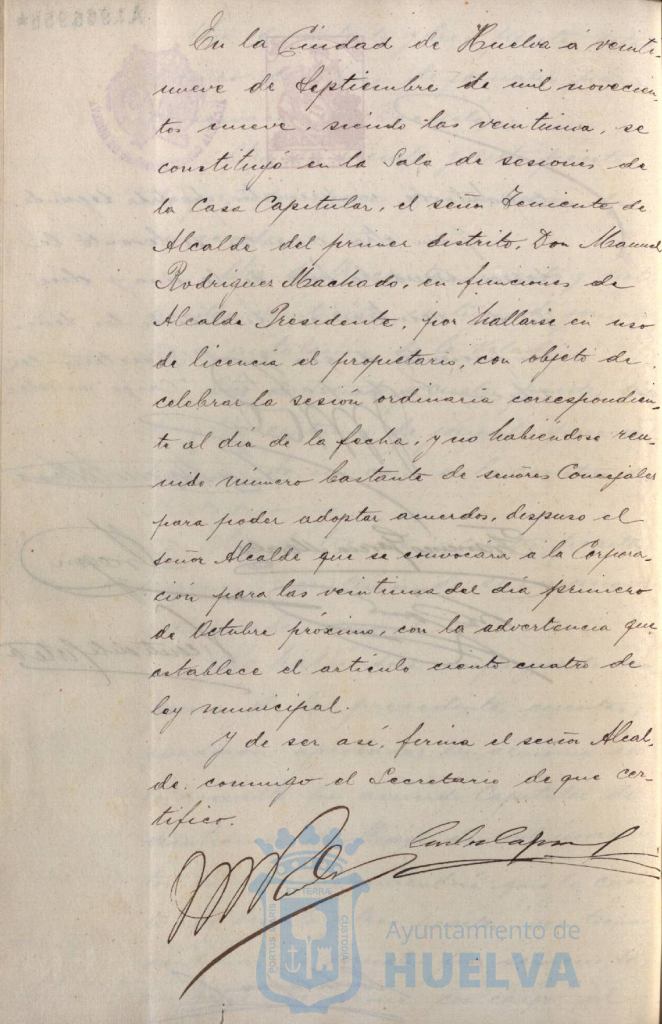 En la Ciudad de Huelva á veinti-
nueve de Septiembre de mil novecien-
tos nueve, siendo las veintiuna, se
constituyó en la Sala de sesiones de
la Casa Capitular, el señor Teniente de
Alcalde del primer distrito, Don Manuel
Rodriguez Machado, en funciones de
Alcalde Presidente, por hallarse en uso
de licencia el propietario, con objeto de
celebrar la sesión ordinaria correspondien-
te al día de la fecha, y no habiéndose reu-
nido número bastante de señores Concejales
para poder adoptar acuerdos, dispuso el
señor Alcalde que se convocára á la Corpora-
ción para las veintiuna del día primero
de Octubre próximo, con la advertencia que
establece el artículo ciento cuatro de
ley municipal.
Y de ser así, firma el señor Alcal-
de, conmigo el Secretario de que cer-
tifico.
PORTUS MARIS ET TERRÆ CUSTODIA
Ayuntamiento de
HUELVA